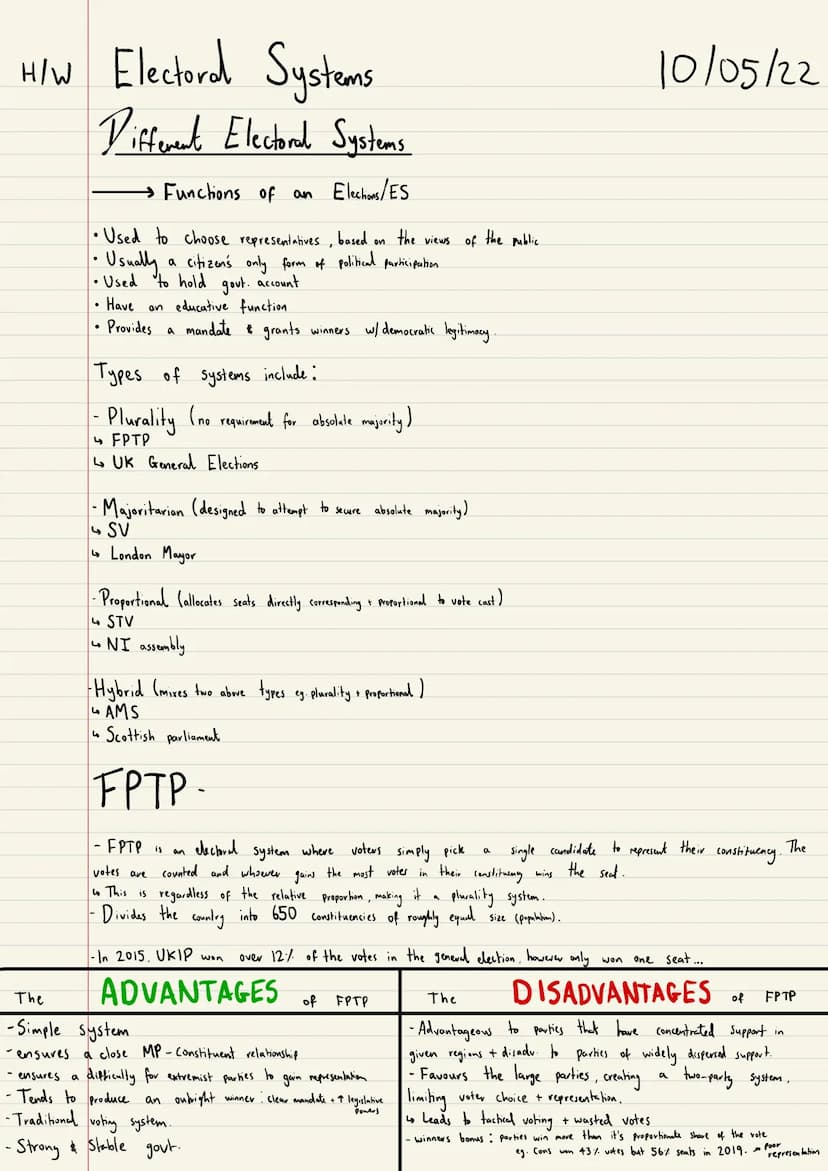 H/W Electoral Systems 10/05/22
Different Electoral Systems
→ Functions of an Elections/ES
• Used to choose representatives, based on the views of the public
• Usually a citizen's only form of political participation
• Used to hold govt. account
• Have an educative function
• Provides a mandate & grants winners w/ democratic legitimacy.
Types of systems include:
- Plurality (no requirement for absolute majority)
↳ FPTP
↳ UK General Elections
- Majoritarian (designed to attempt to secure absolute majority)
↳ SV
↳ London Mayor
- Proportional (allocates seats directly corresponding + proportional to vote cast)
↳ STV
↳ NI assembly
- Hybrid (mixes two above types eg. plurality + proportional)
↳ AMS
↳ Scottish parliament
FPTP -
- FPTP is an electoral system where voters simply pick a single candidate to represent their constituency. The
votes are counted and whoever gains the most votes in their constituency wins the seat.
↳ This is regardless of the relative proportion, making it a plurality system.
- Divides the country into 650 constituencies of roughly equal size (population).
- In 2015, UKIP won over 12% of the votes in the general election, however only won one seat...
The ADVANTAGES of FPTP
- Simple system
- ensures a close MP-constituent relationship
- ensures a difficulty for extremist parties to gain representation
- Tends to produce an outright winner: clear mandate + ↑ legislative
powers
- Traditional voting system.
- Strong & Stable govt.
The DISADVANTAGES of FPTP
- Advantageous to parties that have concentrated support in
given regions + disadv. to parties of widely dispersed support.
- Favours the large parties, creating a two-party system,
limiting voter choice + representation.
↳ Leads to tactical voting + wasted votes
- winners bonus: parties win more than it's proportionate share of the vote
eg. Cons won 43% votes but 56% seats in 2019. → poor
representation